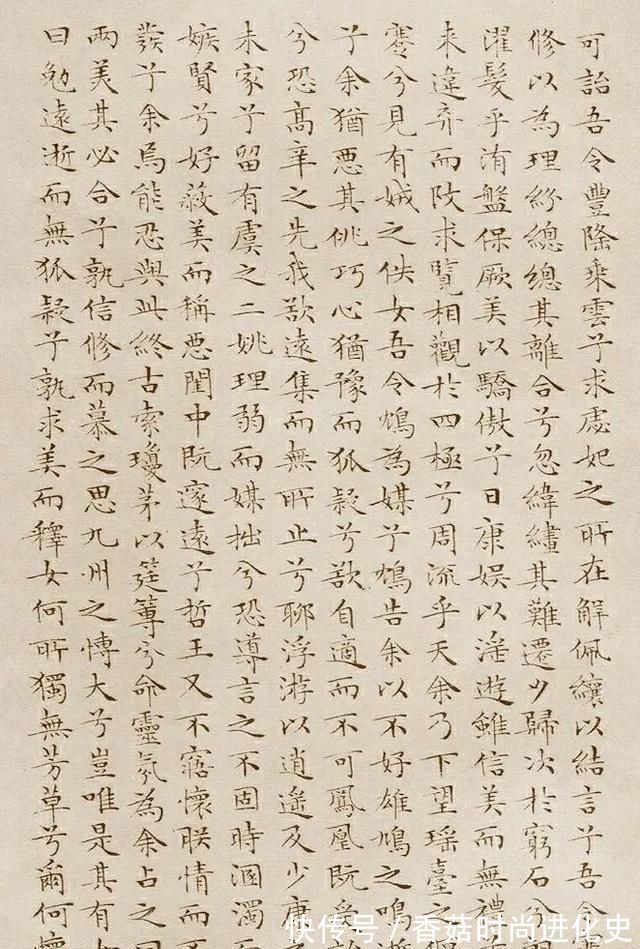 可詒吾令豐隆乘雲兮求虙妃之所在解佩纕以結言兮吾令
修以為理紛總總其離合兮忽緯繣其難遷夕歸次於窮石兮
濯髮乎洧盤保厥美以驕傲兮日康娛以淫遊雖信美而無禮
来違弃而改求覽相觀於四極兮周流乎天余乃下望瑤臺之
蹇兮見有娀之佚女吾令鴆為媒兮鴆告余以不好雄鳩之鳴
兮余猶惡其佻巧心猶豫而狐疑兮欲自適而不可鳳凰既受
兮恐高辛之先我欲遠集而無所止兮聊浮游以逍遙及少康
未家兮留有虞之二姚理弱而媒拙兮恐導言之不固時溷濁而
嫉賢兮好蔽美而稱惡閨中既邃遠兮哲王又不寤懷朕情而不
發兮余焉能忍與此終古索瓊茅以筳篿兮命靈氛為余占之曰
兩美其必合兮孰信修而慕之思九州之博大兮豈唯是其有
曰勉遠逝而無狐疑兮孰求美而釋女何所獨無芳草兮爾何懷
快传号/香菇时尚进化史